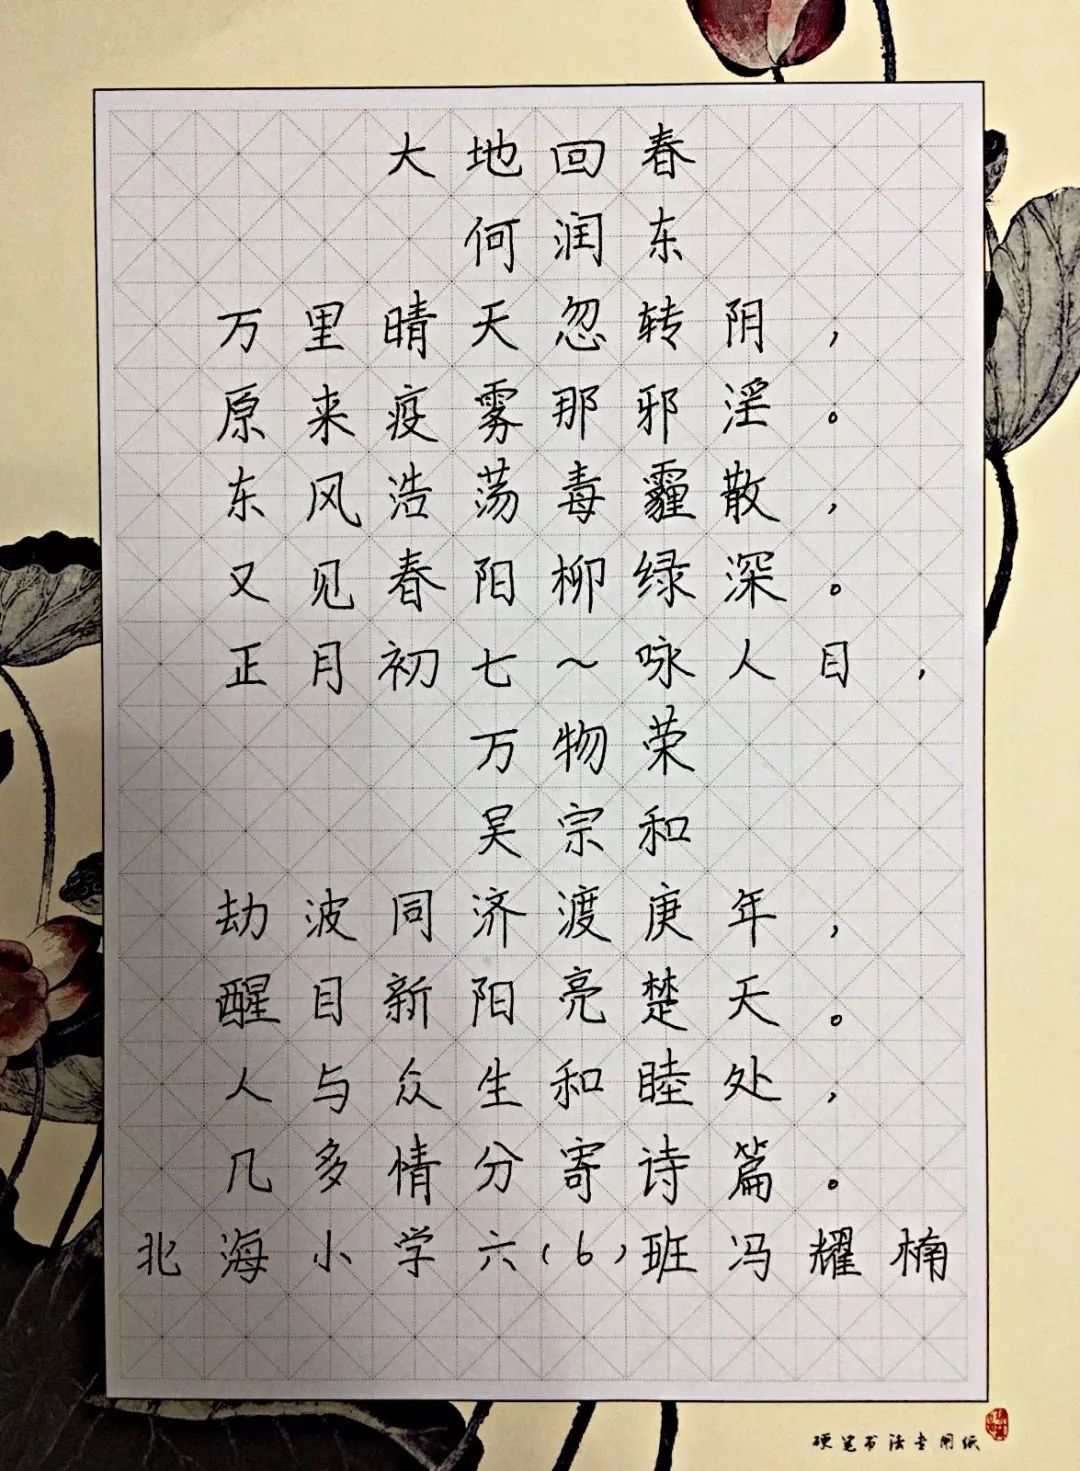 大地回春
何润东
万里晴天忽转阴，
原来疫雾那邪淫。
东风浩荡毒霾散，
又见春阳柳绿深。
正月初七～咏人目，
万物荣
吴宗和
劫波同济渡庚年，
醒目新阳亮楚天。
人与众生和睦处，
几多情分寄诗篇。
北海小学六(6)班冯耀楠
硬笔书法专用纸